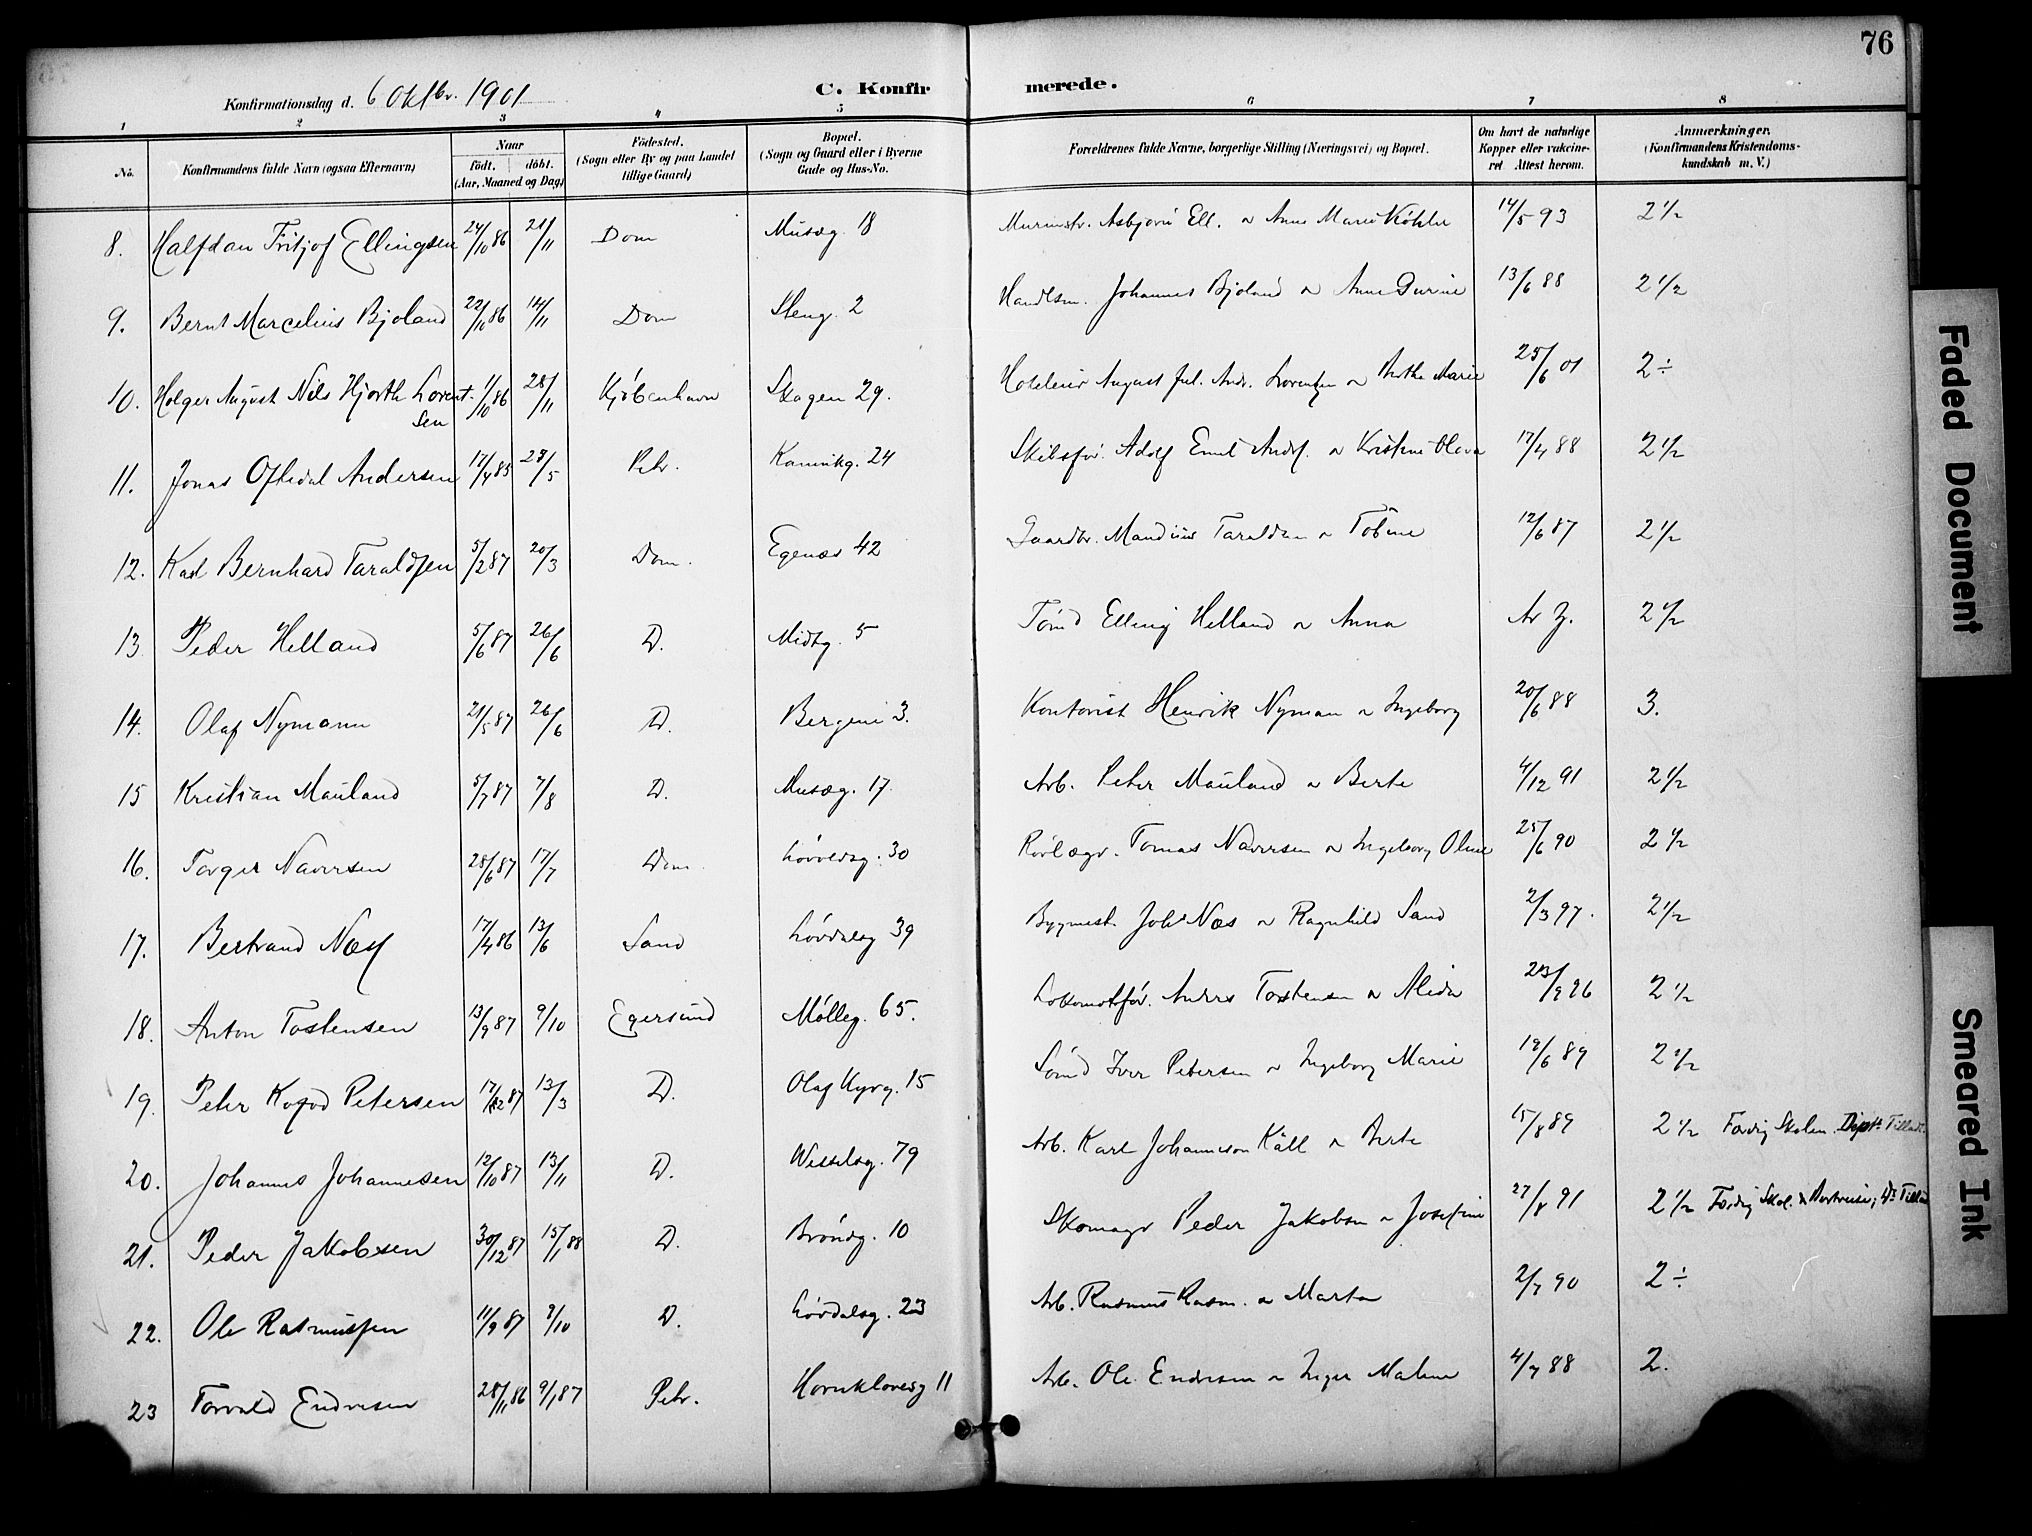 76
Konfirmationsdag d. 6 Oktbr. 1901
C. Konfirmerede.
1 2 3 4 5 6 7 8
No.
Konfirmandens fulde Navn (ogsaa Efternavn)
Naar
født. døbt.
(Aar, Maaned og Dag)
Fødested.
(Sogn eller By og paa Landet
tillige Gaard)
Bopæl.
(Sogn og Gaard eller i Byerne
Gade og Hus-No.
Forældrenes fulde Navne, borgerlige Stilling (Næringsvei) og Bopæl.
Om havt de naturlige
Kopper eller vakcine-
ret Attest herom.
Anmærkninger.
(Konfirmandens Kristendoms-
kundskab m. V.)
8. Halfdan Fritjof Ellingsen 24/10 86 21/11 Dom Musæg. 18 Murmstr. Asbjørn Ell. o Anne Marie Køhler 14/5 93 2 1/2
9. Bernt Marcelius Bjoland 22/10 86 14/11 Dom Steng. 2 Handlsm. Johannes Bjoland o Anne Gurine 13/6 88 2 1/2
10. Holger August Nils Hjorth Lorent-
sen 1/10 86 28/11 Kjøbenhavn Skagen 29. Hoteleier August Jul. Andr. Lorentzen o Berthe Marie 25/6 01 2 ÷
11. Jonas Oftedal Andersen 17/4 85 28/5 Petr. Kannikg. 24 Skibsfør. Adolf Emil Anders. o Kristine Olava 17/4 88 2 1/2
12. Karl Bernhard Taraldsen 5/2 87 20/3 Dom. Egenæs 42 Gaardbr. Mandius Taraldsen o Tobine 12/6 87 2 1/2
13. Peder Helland 5/6 87 26/6 D. Midtg. 5 Tømd Elling Helland o Anna Ar Z. 2 1/2
14. Olaf Nymann 21/5 87 26/6 D. Bergeni 3. Kontorist Henrik Nyman o Ingeborg 20/6 88 3.
15 Kristian Mauland 5/7 87 7/8 D. Musæg. 17. Arb. Peter Mauland o Berte 4/12 91 2 1/2
16. Torger Naversen 28/6 87 17/7 Dom Løvoldsg. 30 Rørlægr. Tomas Naversen o Ingeborg Oline 25/6 90 2 1/2
17. Bertrand Næss 17/4 86 13/6 Sand Løvdalsg 39 Bygmest. Johs Næs o Ragnhild Sand 2/3 97. 2 1/2
18. Anton Tostensen 13/9 87 9/10 Egersund Mølleg. 65. Lokomotfør. Andrs Tostensen o Alida 2 1/2
19. Peter Kofod Petersen 13/3 D. Olaf Kyrg. 15 Sømd Iver Petersen o Ingeborg Marie 19/6 89 2 1/2
20. Johannes Johannesen 12/10 87 13/11 D. Wesselsg. 79 Arb. Karl Johanneson Käll o Berte 15/8 89 2 1/2 Færdig Skolen. Dipt. Tillad.
21. Peder Jakobsen 30/12 87 15/1 88 D. Brøndg. 10 Skomagr Peder Jakobsen o Josefine 27/8 91 2 1/2 Færdig Skol. Ds Tillad
22. Ole Rasmussen 11/9 87 9/10 D. Løvdalsg. 23 Arb. Rasmus Rasm. o Marta 2/7 90 2 ÷
23 Torvald Endresen 28/11 86 9/1 87 Petr. Hornklovesg 11 Arb. Ole Endresen o Inger Malene 4/7 88 2.
Faded Document
Smeared Ink